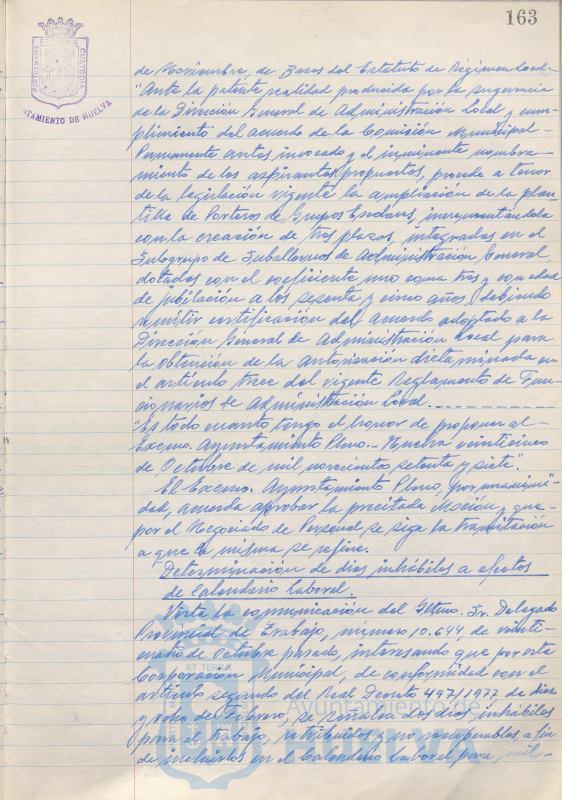 163
AYUNTAMIENTO DE HUELVA
de Noviembre, de Bases del Estatuto de Régimen Local.-
"Ante la patente realidad producida por la sugerencia
de la Dirección General de Administración Local y cum-
plimiento del acuerdo de la Comisión Municipal
Permanente antes invocado y el inminente nombra-
miento de los aspirantes propuestos, procede a tenor
de la legislación vigente la ampliación de la plan-
tilla de Porteros de Grupos Escolares, incrementándola
con la creación de tres plazas, integradas en el
Subgrupo de Subalternos de Administración General,
dotadas con el coeficiente uno coma tres y con edad
de jubilación a los sesenta y cinco años, debiendo
remitir certificación del Acuerdo adoptado a la
Dirección General de Administración Local para
la obtención de la autorización determinada en
el artículo trece del vigente Reglamento de Fun-
cionarios de Administración Local.
"Es todo cuanto tengo el honor de proponer al
Excmo. Ayuntamiento Pleno.- Huelva veinticinco
de Octubre de mil novecientos setenta y siete".
El Excmo. Ayuntamiento Pleno, por unanimi-
dad, acuerda aprobar la precitada Moción y que
por el Negociado de Personal se siga la tramitación
a que la misma se refiere.
Determinación de días inhábiles a efectos
de Calendario Laboral.
Vista la comunicación del Iltmo. Sr. Delegado
Provincial de Trabajo, número 10.644, de veinti-
cuatro de Octubre pasado, interesando que por esta
Corporación Municipal, de conformidad con el
artículo segundo del Real Decreto 497/1977 de diez
y ocho de Febrero, se señalen dos días inhábiles
para el trabajo, retribuidos y no recuperables a fin
de incluirlos en el Calendario Laboral para mil-
ET TERRE
Ayuntamiento de
HUELVA